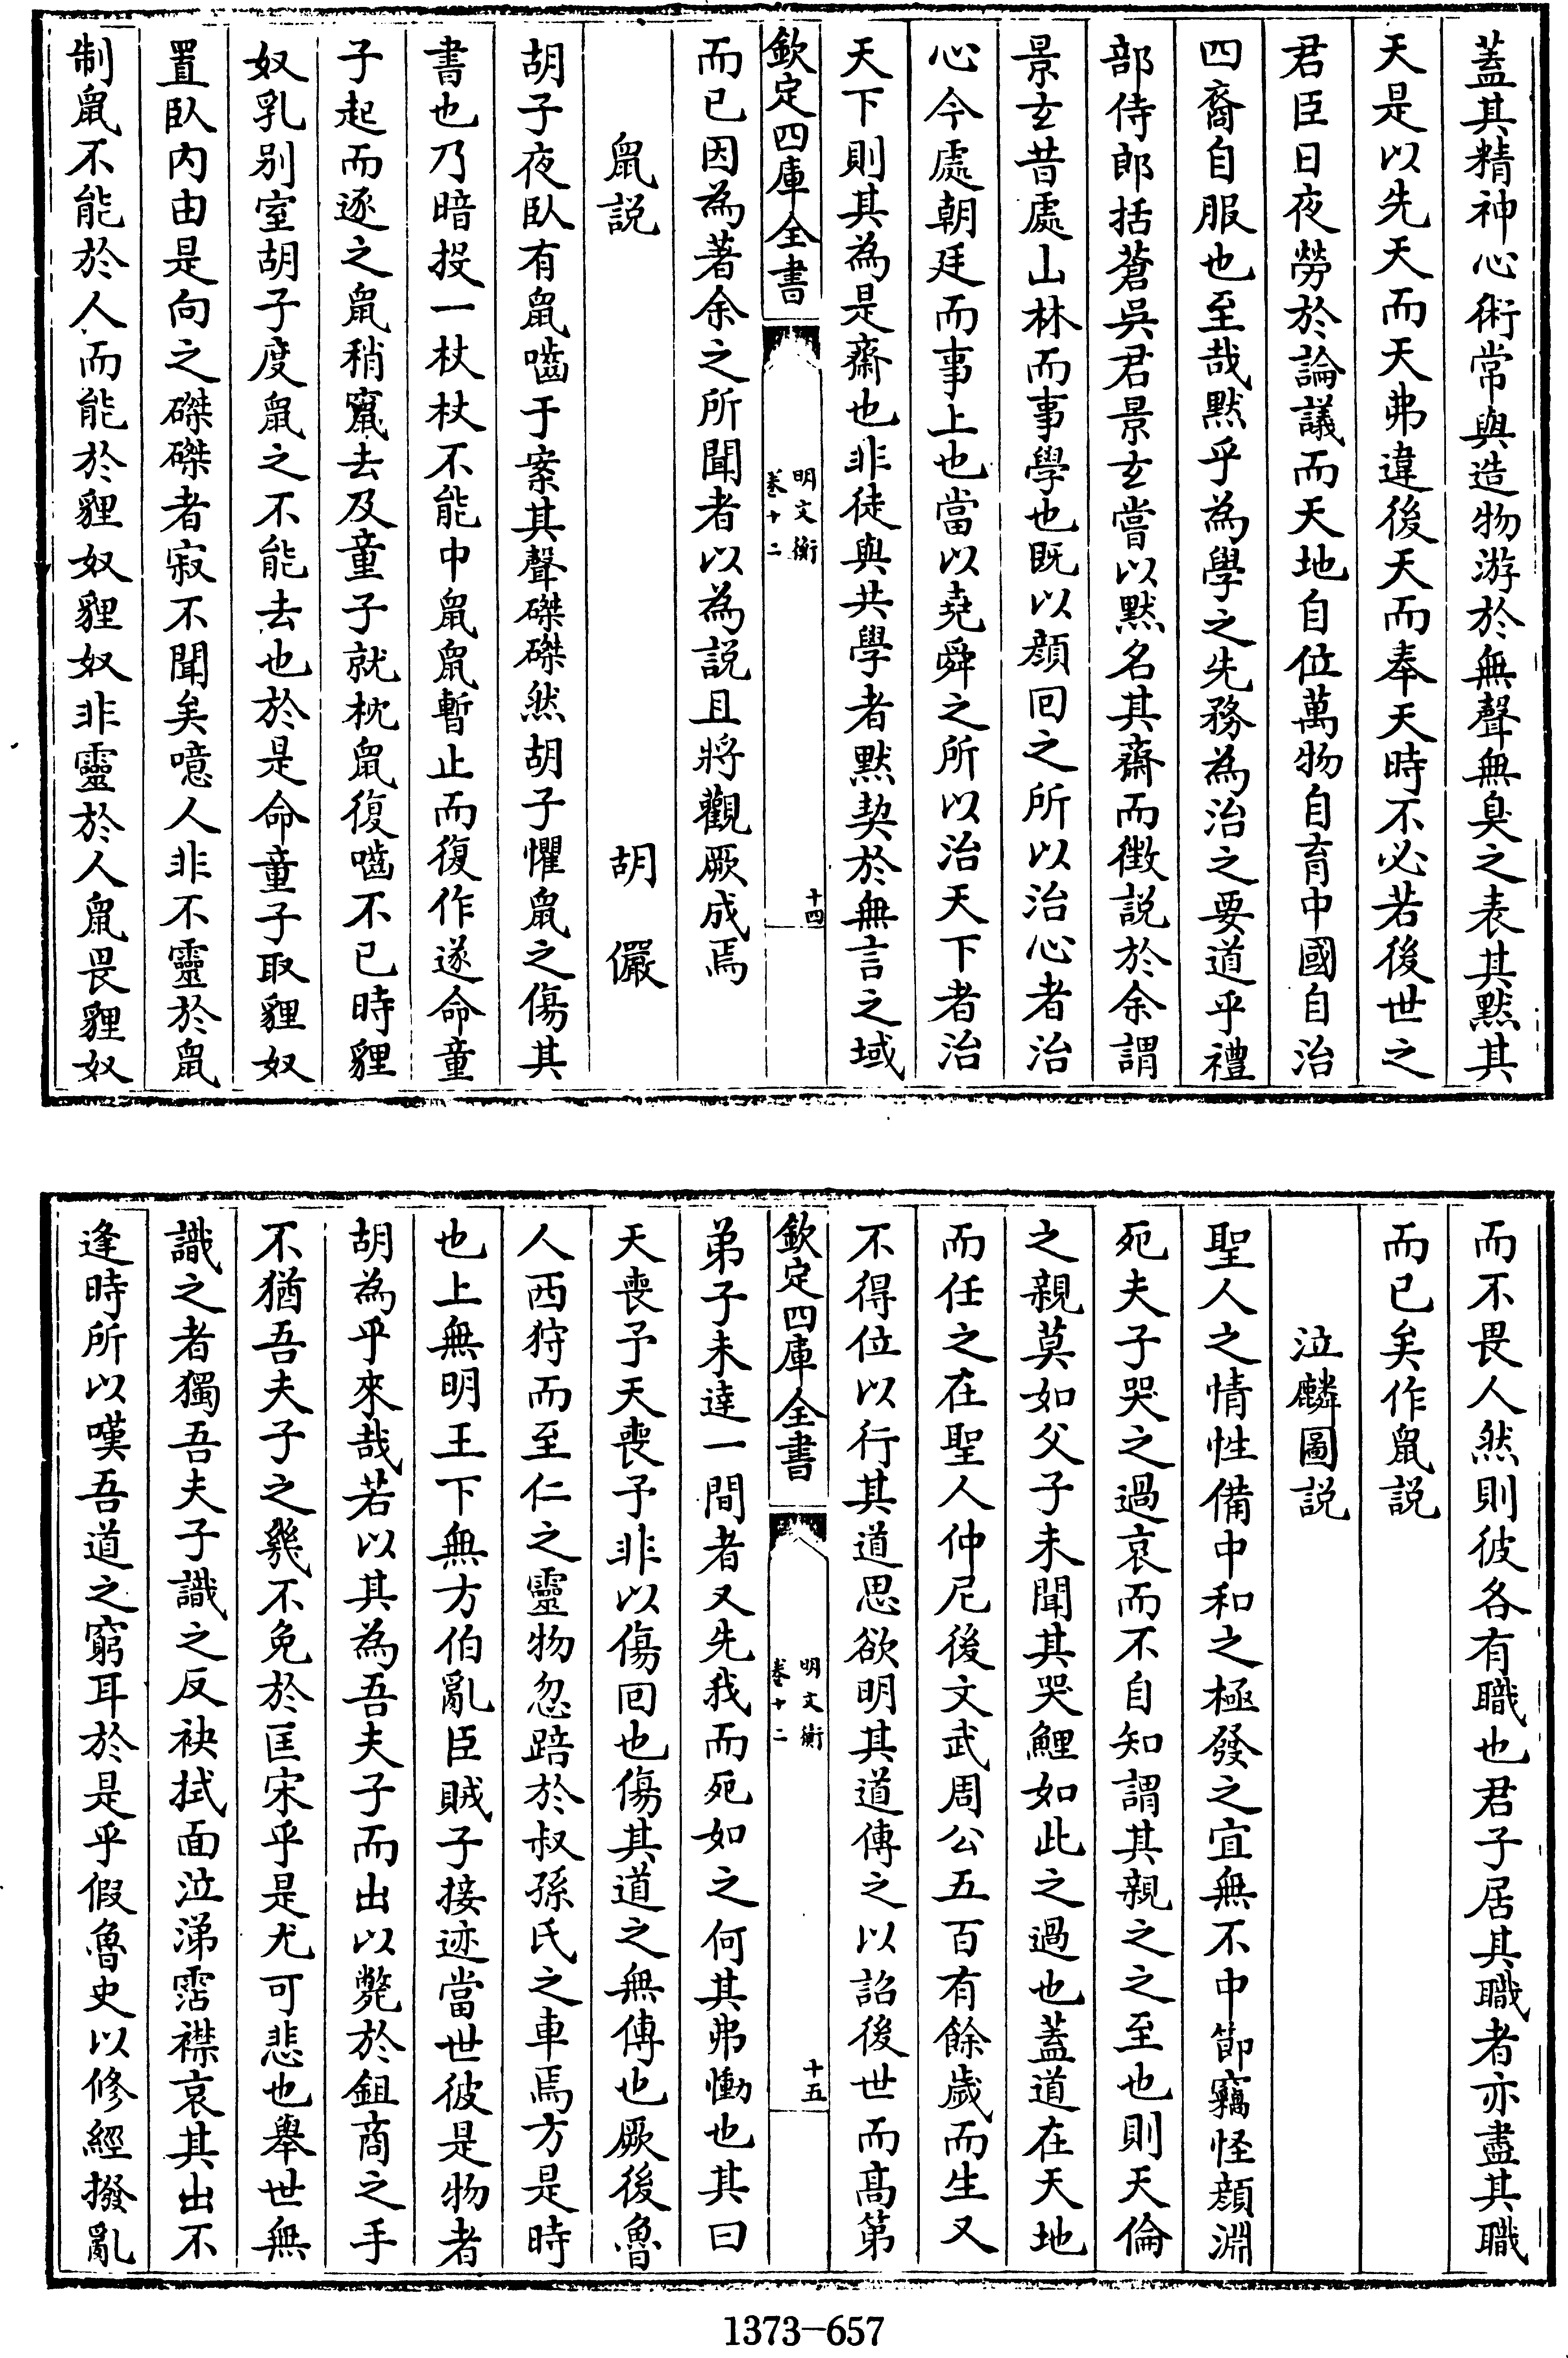 蓋其精神心術常與造物游於無聲無臭之表其黙其
天是以先天而天弗違後天而奉天時不必若後世之
君臣日夜勞於論議而天地自位萬物自育中國自治
四裔自服也至哉黙乎為學之先務為治之要道乎禮
部侍郎括蒼吳君景玄嘗以黙名其齋而徴説於余謂
景玄昔處山林而事學也既以顔回之所以治心者治
心今處朝廷而事上也當以堯舜之所以治天下者治
天下則其為是齋也非徒與共學者黙契於無言之域
欽定四庫全書
明文衡
卷十二
十四
而已因為著余之所聞者以為説且將觀厥成焉
鼠説
胡儼
胡子夜臥有鼠嚙于案其聲磔磔然胡子懼鼠之傷其
書也乃暗投一杖杖不能中鼠鼠暫止而復作遂命童
子起而逐之鼠稍竄去及童子就枕鼠復嚙不已時貍
奴乳别室胡子度鼠之不能去也於是命童子取貍奴
置臥内由是向之磔磔者寂不聞矣噫人非不靈於鼠
制鼠不能於人而能於貍奴貍奴非靈於人鼠畏貍奴
而不畏人然則彼各有職也君子居其職者亦盡其職
而已矣作鼠説
泣麟圖説
聖人之情性備中和之極發之宜無不中節竊怪顔淵
死夫子哭之過哀而不自知謂其親之之至也則天倫
之親莫如父子未聞其哭鯉如此之過也蓋道在天地
而任之在聖人仲尼後文武周公五百有餘歲而生又
不得位以行其道思欲明其道傳之以詔後世而高第
欽定四庫全書
明文衡
卷十二
十五
弟子未達一間者又先我而死如之何其弗慟也其曰
天喪予天喪予非以傷回也傷其道之無傳也厥後魯
人西狩而至仁之靈物忽踣於叔孫氏之車焉方是時
也上無明王下無方伯亂臣賊子接迹當世彼是物者
胡為乎來哉若以其為吾夫子而出以斃於鉏商之手
不猶吾夫子之幾不免於匡宋乎是尤可悲也舉世無
識之者獨吾夫子識之反袂拭面泣涕霑襟哀其出不
逢時所以嘆吾道之窮耳於是乎假魯史以修經撥亂
1373-657